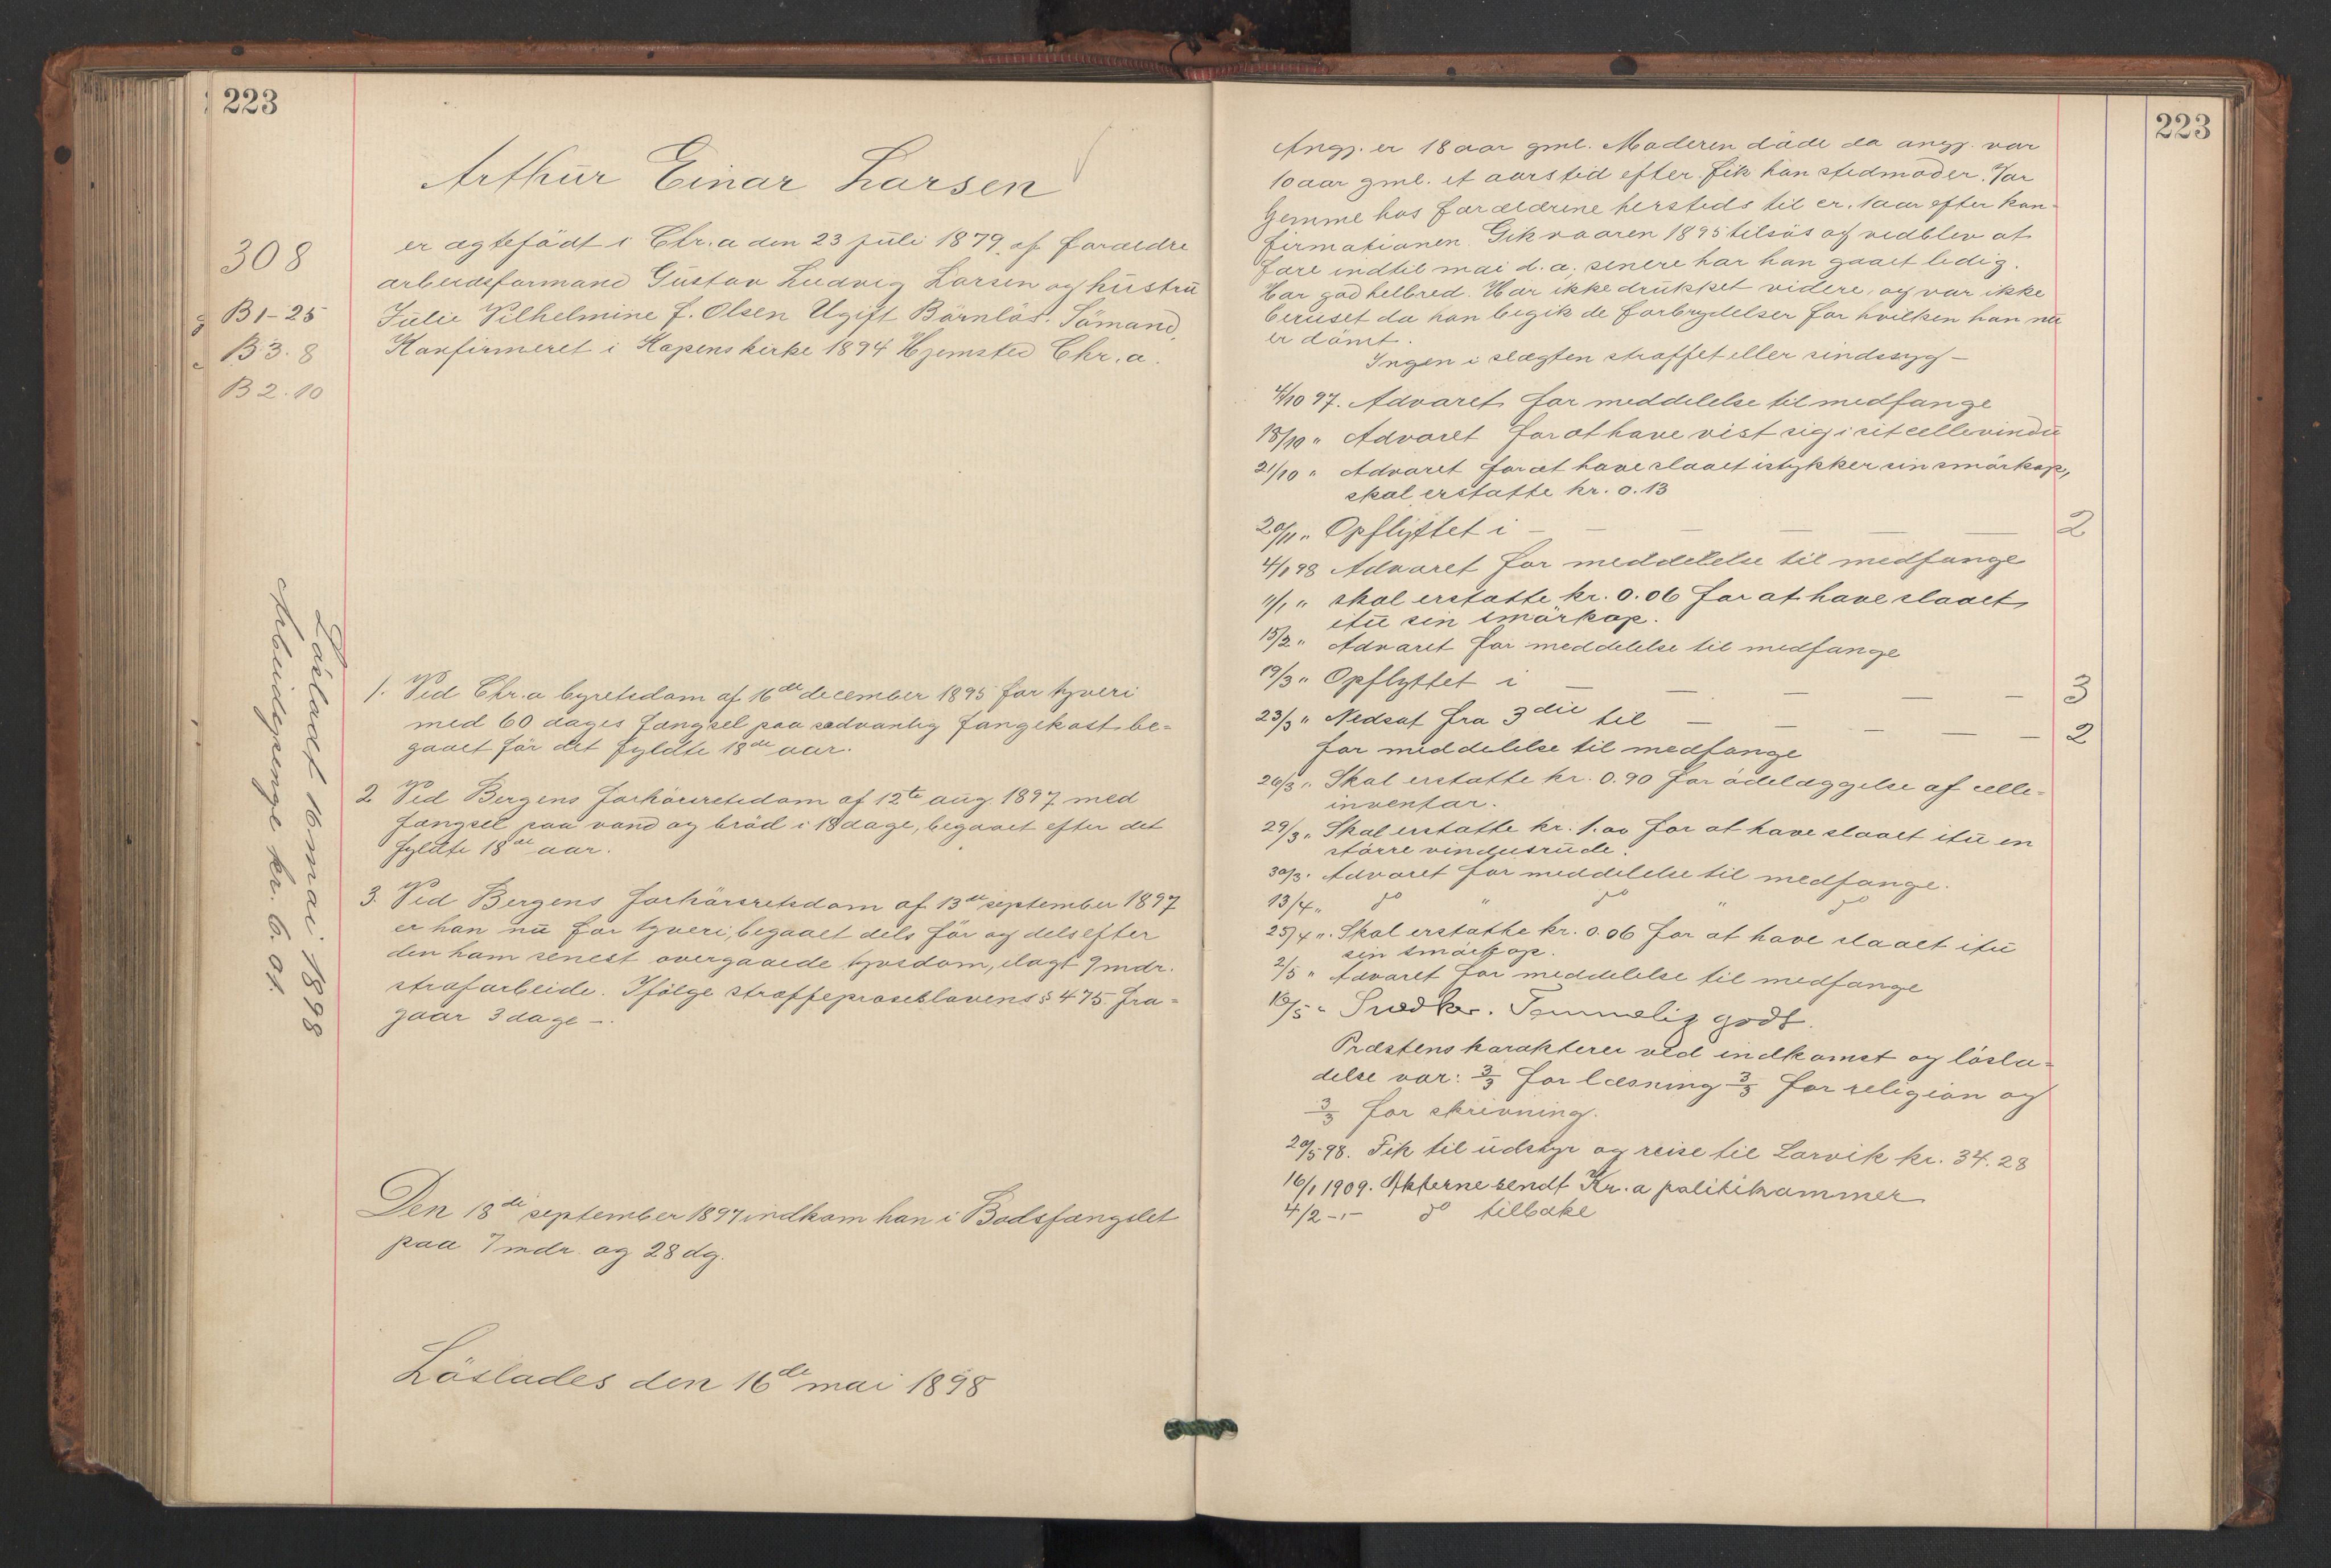 223
Arthur Einar Larsen
308
B 1-25
B.3. 8
B 2.10
er ægtefödt i Chr.a den 23 juli 1879 af forældre
arbeidsformand Gustav Ludvig Larsen og hustru
Julie Vilhelmine f. Olsen Ugift Börnlös. Sömand,
Konfirmeret i Hopens kirke 1894 Hjemsted Chr.a.
Lösladt 16 mai 1898
Arbeidspenge kr. 6.01.
1. Ved Chr.a byretsdom af 16de december 1895 for tyveri
med 60 dages fængsel paa sædvanlig fangekost be=
gaaet för det fyldte 18de aar.
2 Ved Bergens forhörsretsdom af 12te aug. 1897 med
fængsel paa vand og bröd i 18 dage, begaaet efter det
fyldte 18de aar.
3. Ved Bergens forhörsretsdom af 13de september 1897
er han nu for tyveri, begaaet dels för og dels efter
den ham senest overgaaede tyvsdom, ilagt 9 mdr.
strafarbeide. Ifölge straffeproseslovens § 475 fra=
gaar 3 dage -.
Den 18de september 1897 indkom han i Bodsfængslet
paa 7 mdr. og 28 dg.
Löslades den 16de mai 1898
223
Angj. er 18 aar gml. Moderen döde da angj. var
10 aar gml. et aarstid efter fik han stedmoder. Var
hjemme hos forældrene hersteds til cr. 1 aar efter kon-
firmationen. Gik vaaren 1895 tilsös og vedblev at
fare indtil mai d.a; senere har han gaaet ledig.
Har god helbred. Har ikke drukket videre, og var ikke
beruset da han begik de forbrydelser for hvilken han nu
er dömt.
Ingen i slægten straffet eller sindssyg -
4/10 97. Advaret for meddelelse til medfange
18/10 " Advaret for at have vist sig i sit cellevindu
21/10 " Advaret for at have slaaet istykker sin smörkop,
skal erstatte kr. 0.13
20/11 " Opflyttet i - - - - - - 2
4/1 98 Advaret for meddelelse til medfange
11/1 " skal erstatte kr. 0.06 for at have slaaet
itu sin smörkop.
15/2 " Advaret for meddelelse til medfange
19/3 " Opflyttet i - - - - - 3
23/3 " Nedsat fra 3die til - - - - - 2
for meddelelse til medfange
26/3 " Skal erstatte kr. 0.90 for ödelæggelse af celle=
inventar.
29/3 " Skal erstatte kr. 1.00 for at have slaaet itu en
större vindusrude.
30/3 " Advaret for meddelelse til medfange.
13/4 " do " do " do
25/4 " Skal erstatte kr. 0.06 for at have slaaet itu
sin smörkop.
2/5 " Advaret for meddelelse til medfange
16/5 " Snedker. Temmelig godt.
Præstens karakterer ved indkomst og lösla=
delse var: 3/3 for læsning 3/3 for religion og
3/3 for skrivning.
20/5 98. Fik til udstyr og reise til Larvik kr. 34.28
16/1 1909. Akterne sendt Kr.a politikammer
4/2 -"- do tilbake